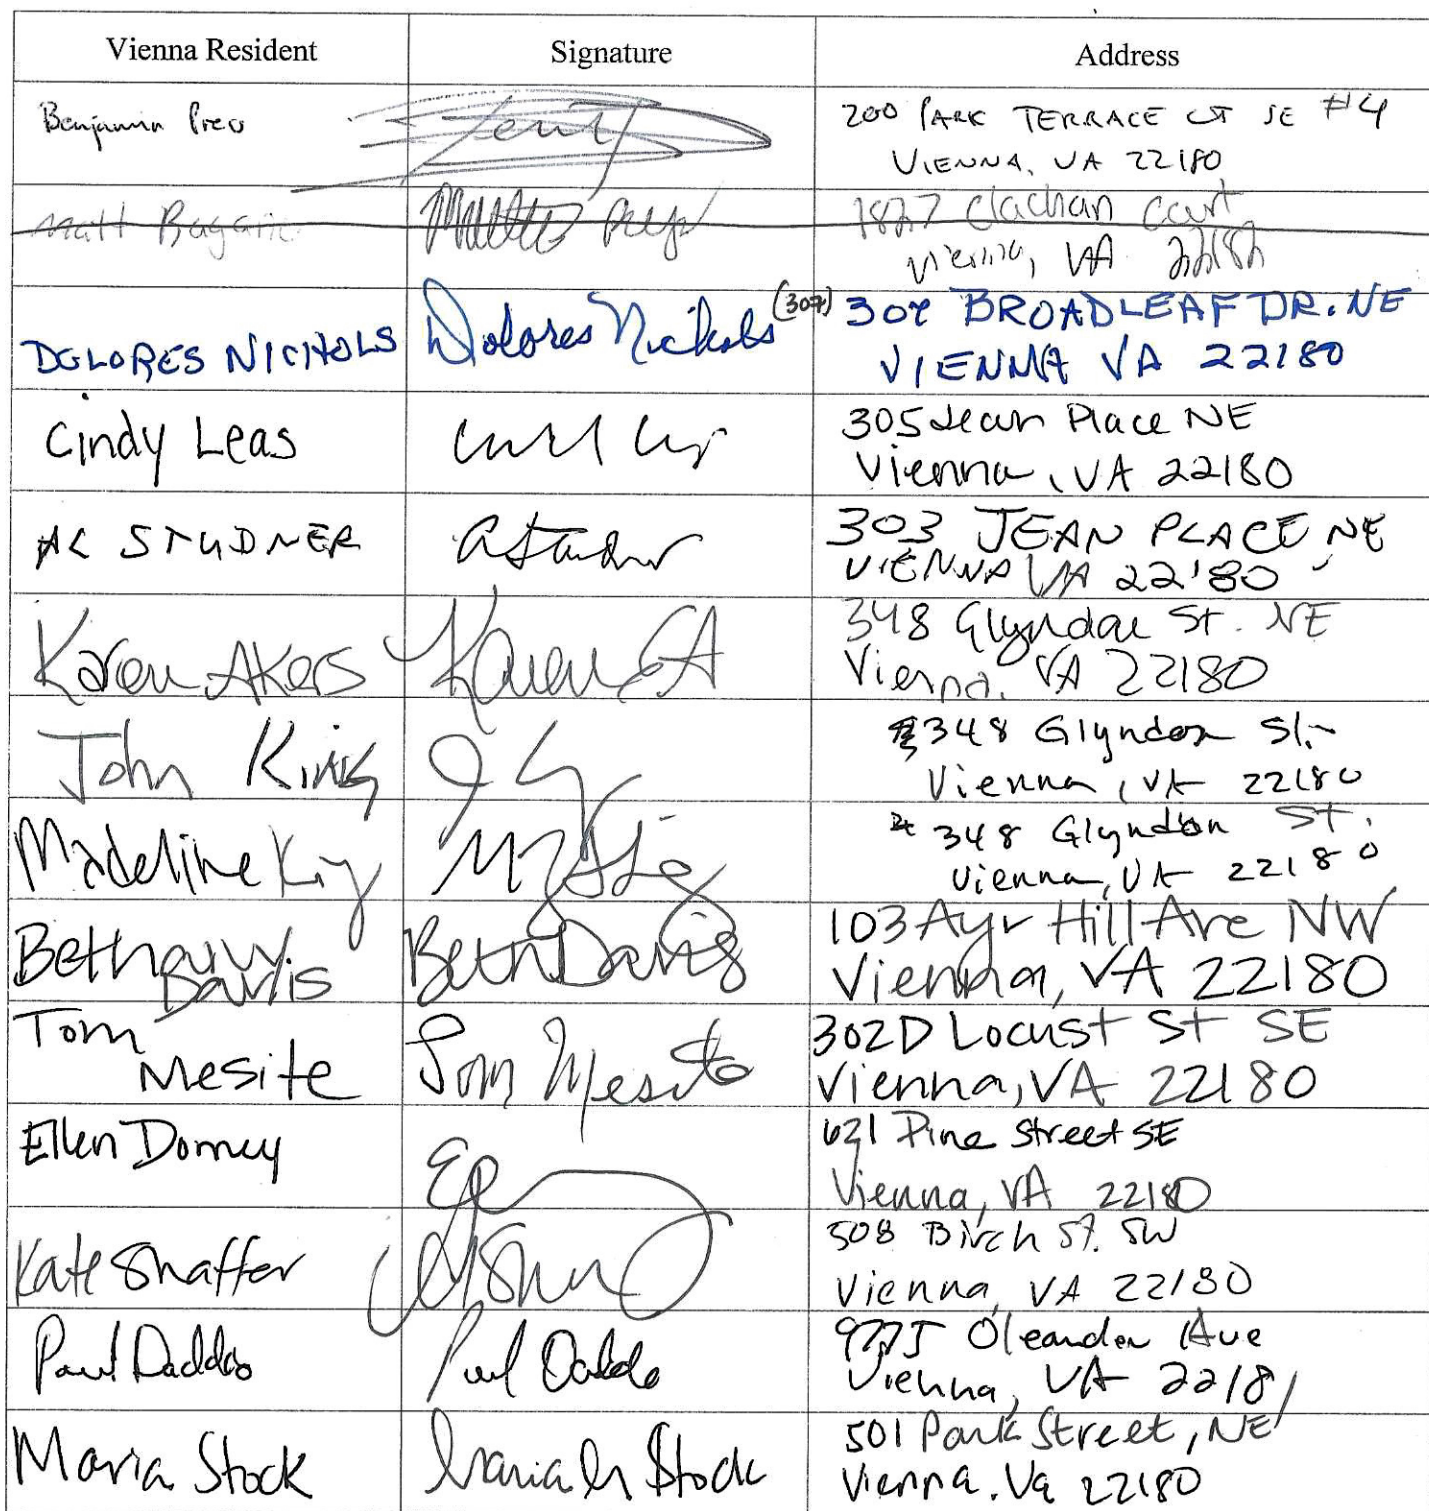 Vienna Resident Signature Address
Benjamin 200 PARK TERRACE CT SE #4
VIENNA, VA 22180
Matt 1827 Clachan Court
Vienna, VA 22182
DOLORES NICHOLS Dolores Nichols (307) 307 BROADLEAF DR. NE
VIENNA VA 22180
Cindy Leas 305 Jean Place NE
Vienna, VA 22180
AL STUDNER 303 JEAN PLACE NE
VIENNA VA 22180
Karen Akers Karen 348 Glyndon St. NE
Vienna, VA 22180
John King 348 Glyndon St.
Vienna, VA 22180
Madeline King 348 Glyndon St.
Vienna, VA 22180
Bethany Davis Beth Davis 103 Ayr Hill Ave NW
Vienna, VA 22180
Tom Mesite Tom Mesite 302D Locust St SE
Vienna, VA 22180
Ellen 621 Pine Street SE
Vienna, VA 22180
Kate Shaffer 508 Birch St. SW
Vienna, VA 22180
Paul Daddio Paul Oleander Ave
Vienna, VA 22181
Maria Stock Maria Stock 501 Park Street, NE
Vienna. Va 22180